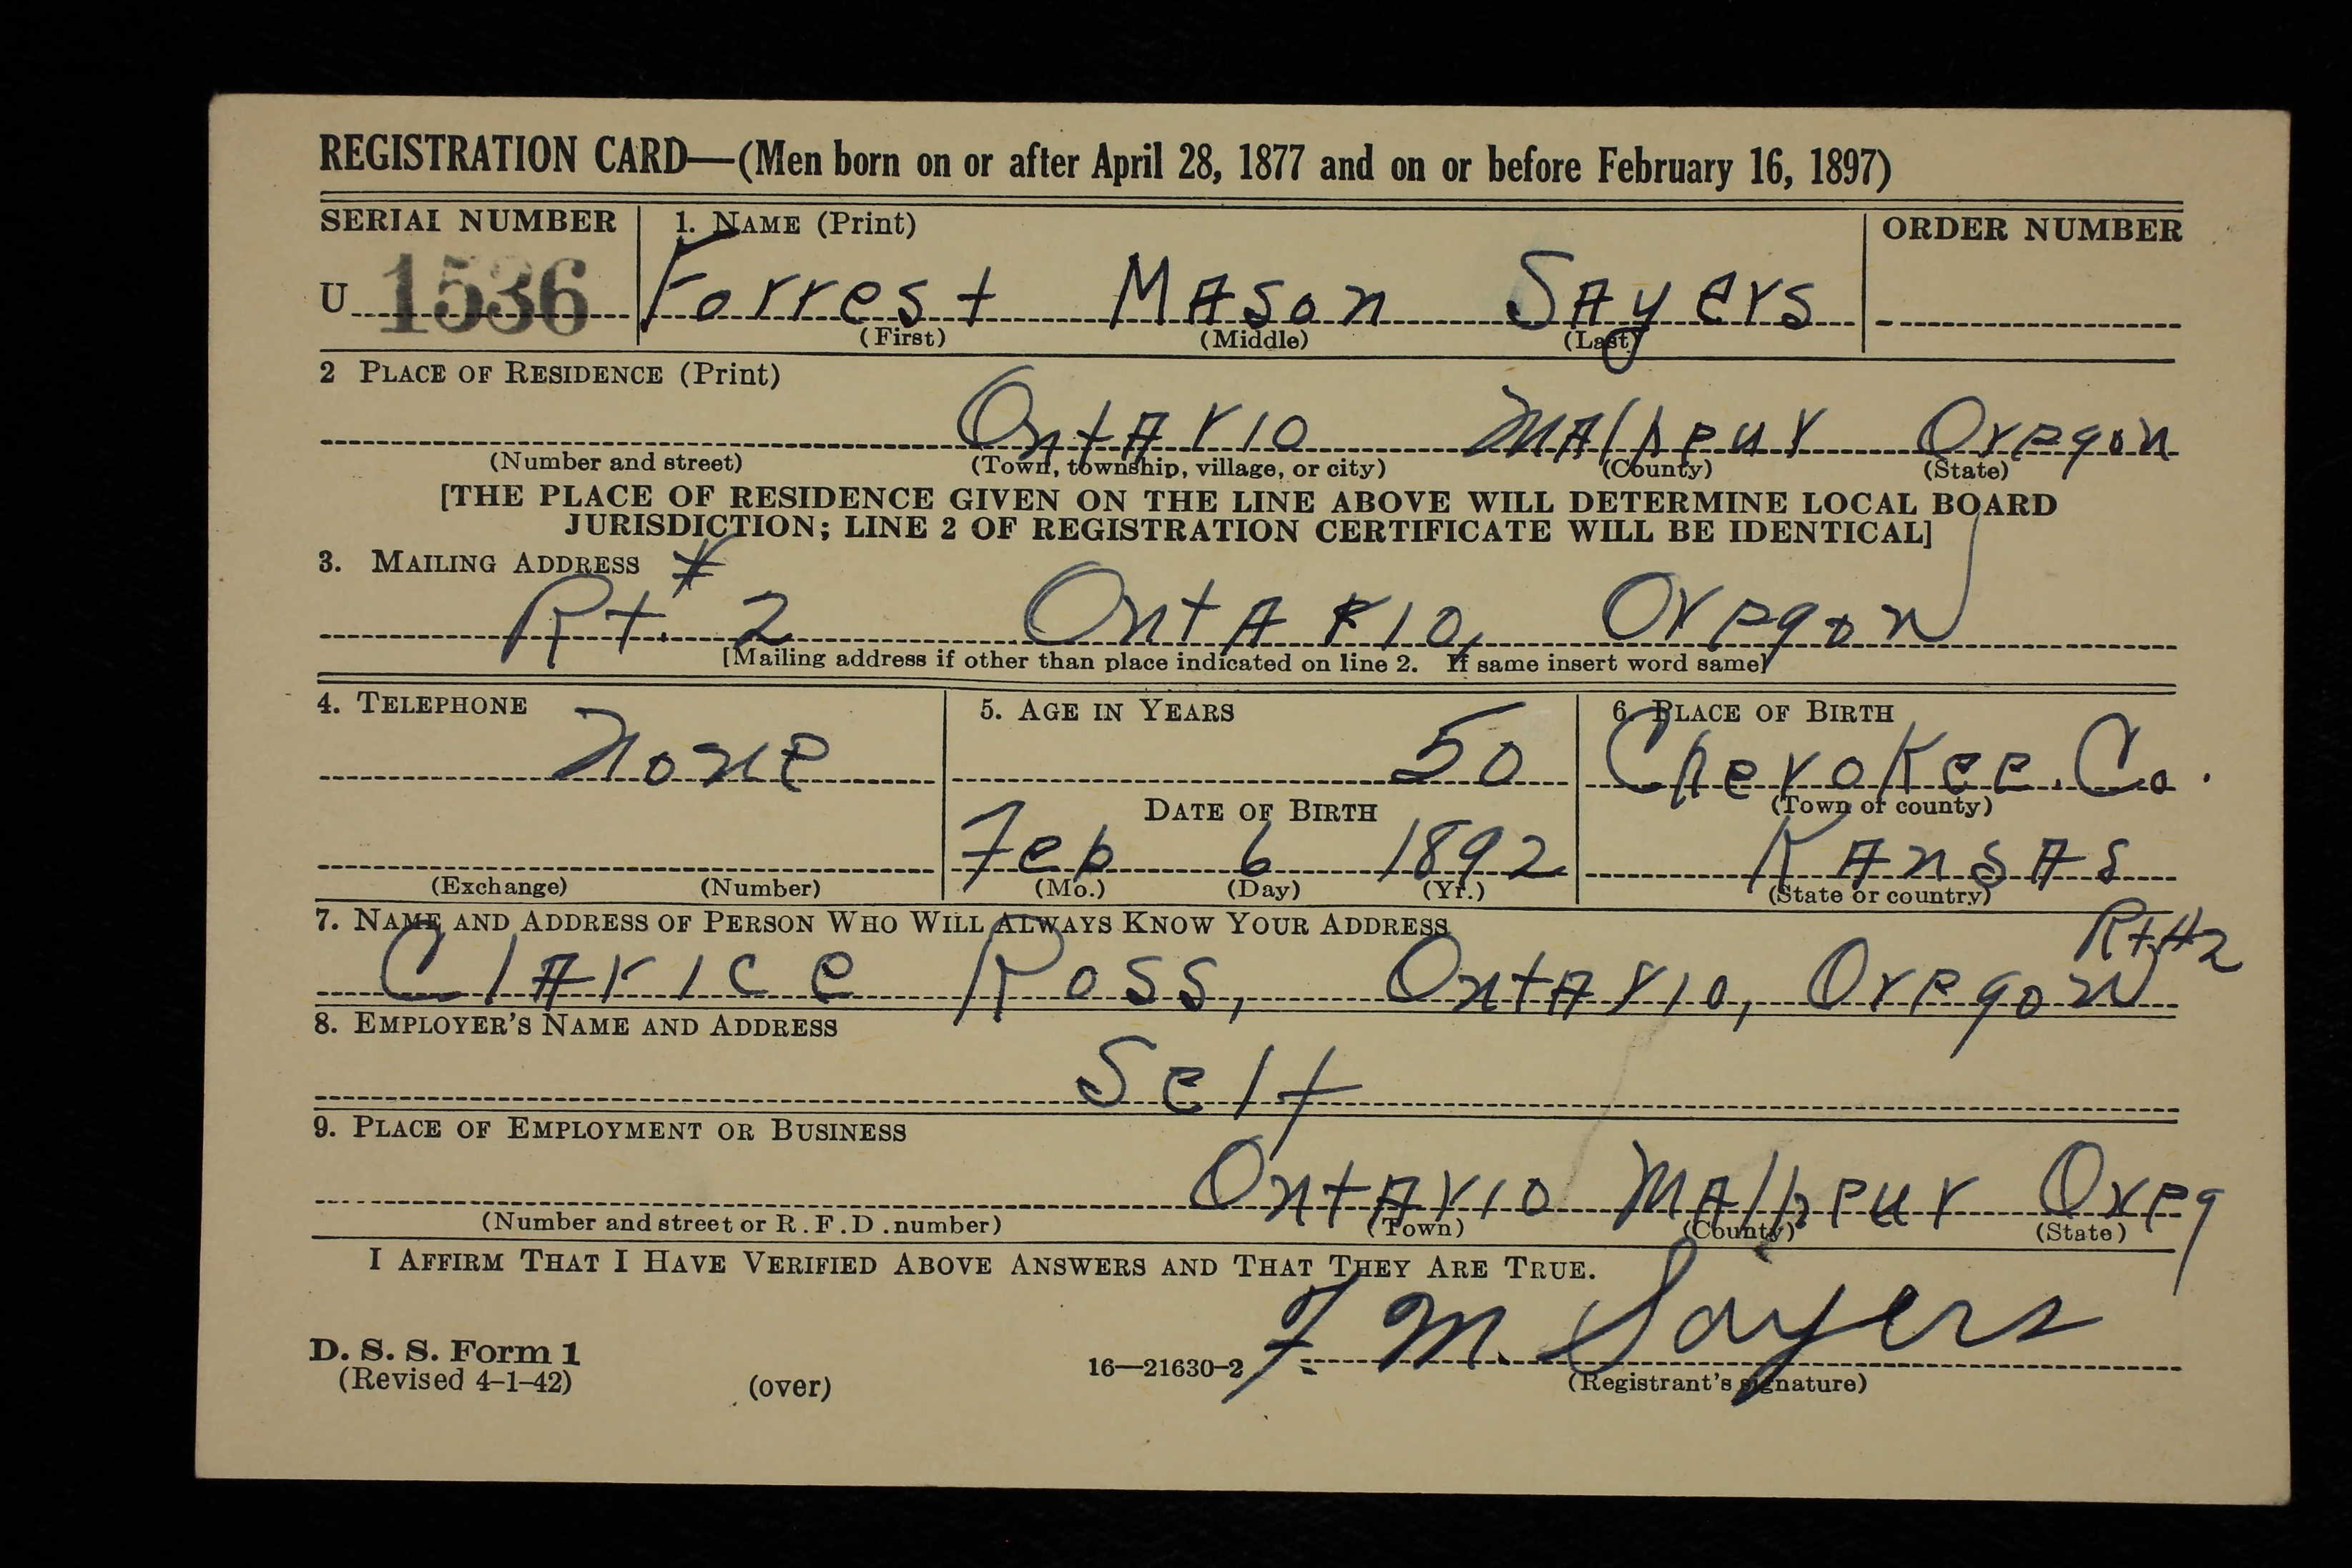 REGISTRATION CARD—(Men born on or after April 28, 1877 and on or before February 16, 1897)
SERIAL NUMBER 1. NAME (Print) ORDER NUMBER
U 1536 Forrest Mason Sayers
(First) (Middle) (Last)
2 PLACE OF RESIDENCE (Print)
Ontario Malheur Oregon
(Number and street) (Town, township, village, or city) (County) (State)
[THE PLACE OF RESIDENCE GIVEN ON THE LINE ABOVE WILL DETERMINE LOCAL BOARD
JURISDICTION; LINE 2 OF REGISTRATION CERTIFICATE WILL BE IDENTICAL]
3. MAILING ADDRESS
Rt. # 2 Ontario, Oregon
[Mailing address if other than place indicated on line 2. If same insert word same]
4. TELEPHONE 5. AGE IN YEARS 6. PLACE OF BIRTH
None 50 Cherokee. Co.
DATE OF BIRTH (Town or county)
Feb 6 1892 Kansas
(Exchange) (Number) (Mo.) (Day) (Yr.) (State or country)
7. NAME AND ADDRESS OF PERSON WHO WILL ALWAYS KNOW YOUR ADDRESS Rt #2
Clarice Ross, Ontario, Oregon
8. EMPLOYER'S NAME AND ADDRESS
Self
9. PLACE OF EMPLOYMENT OR BUSINESS
Ontario Malheur Oreg
(Number and street or R. F. D. number) (Town) (County) (State)
I AFFIRM THAT I HAVE VERIFIED ABOVE ANSWERS AND THAT THEY ARE TRUE.
F. M. Sayers
D. S. S. Form 1
(Revised 4-1-42) (over) 16—21630-2 (Registrant's signature)